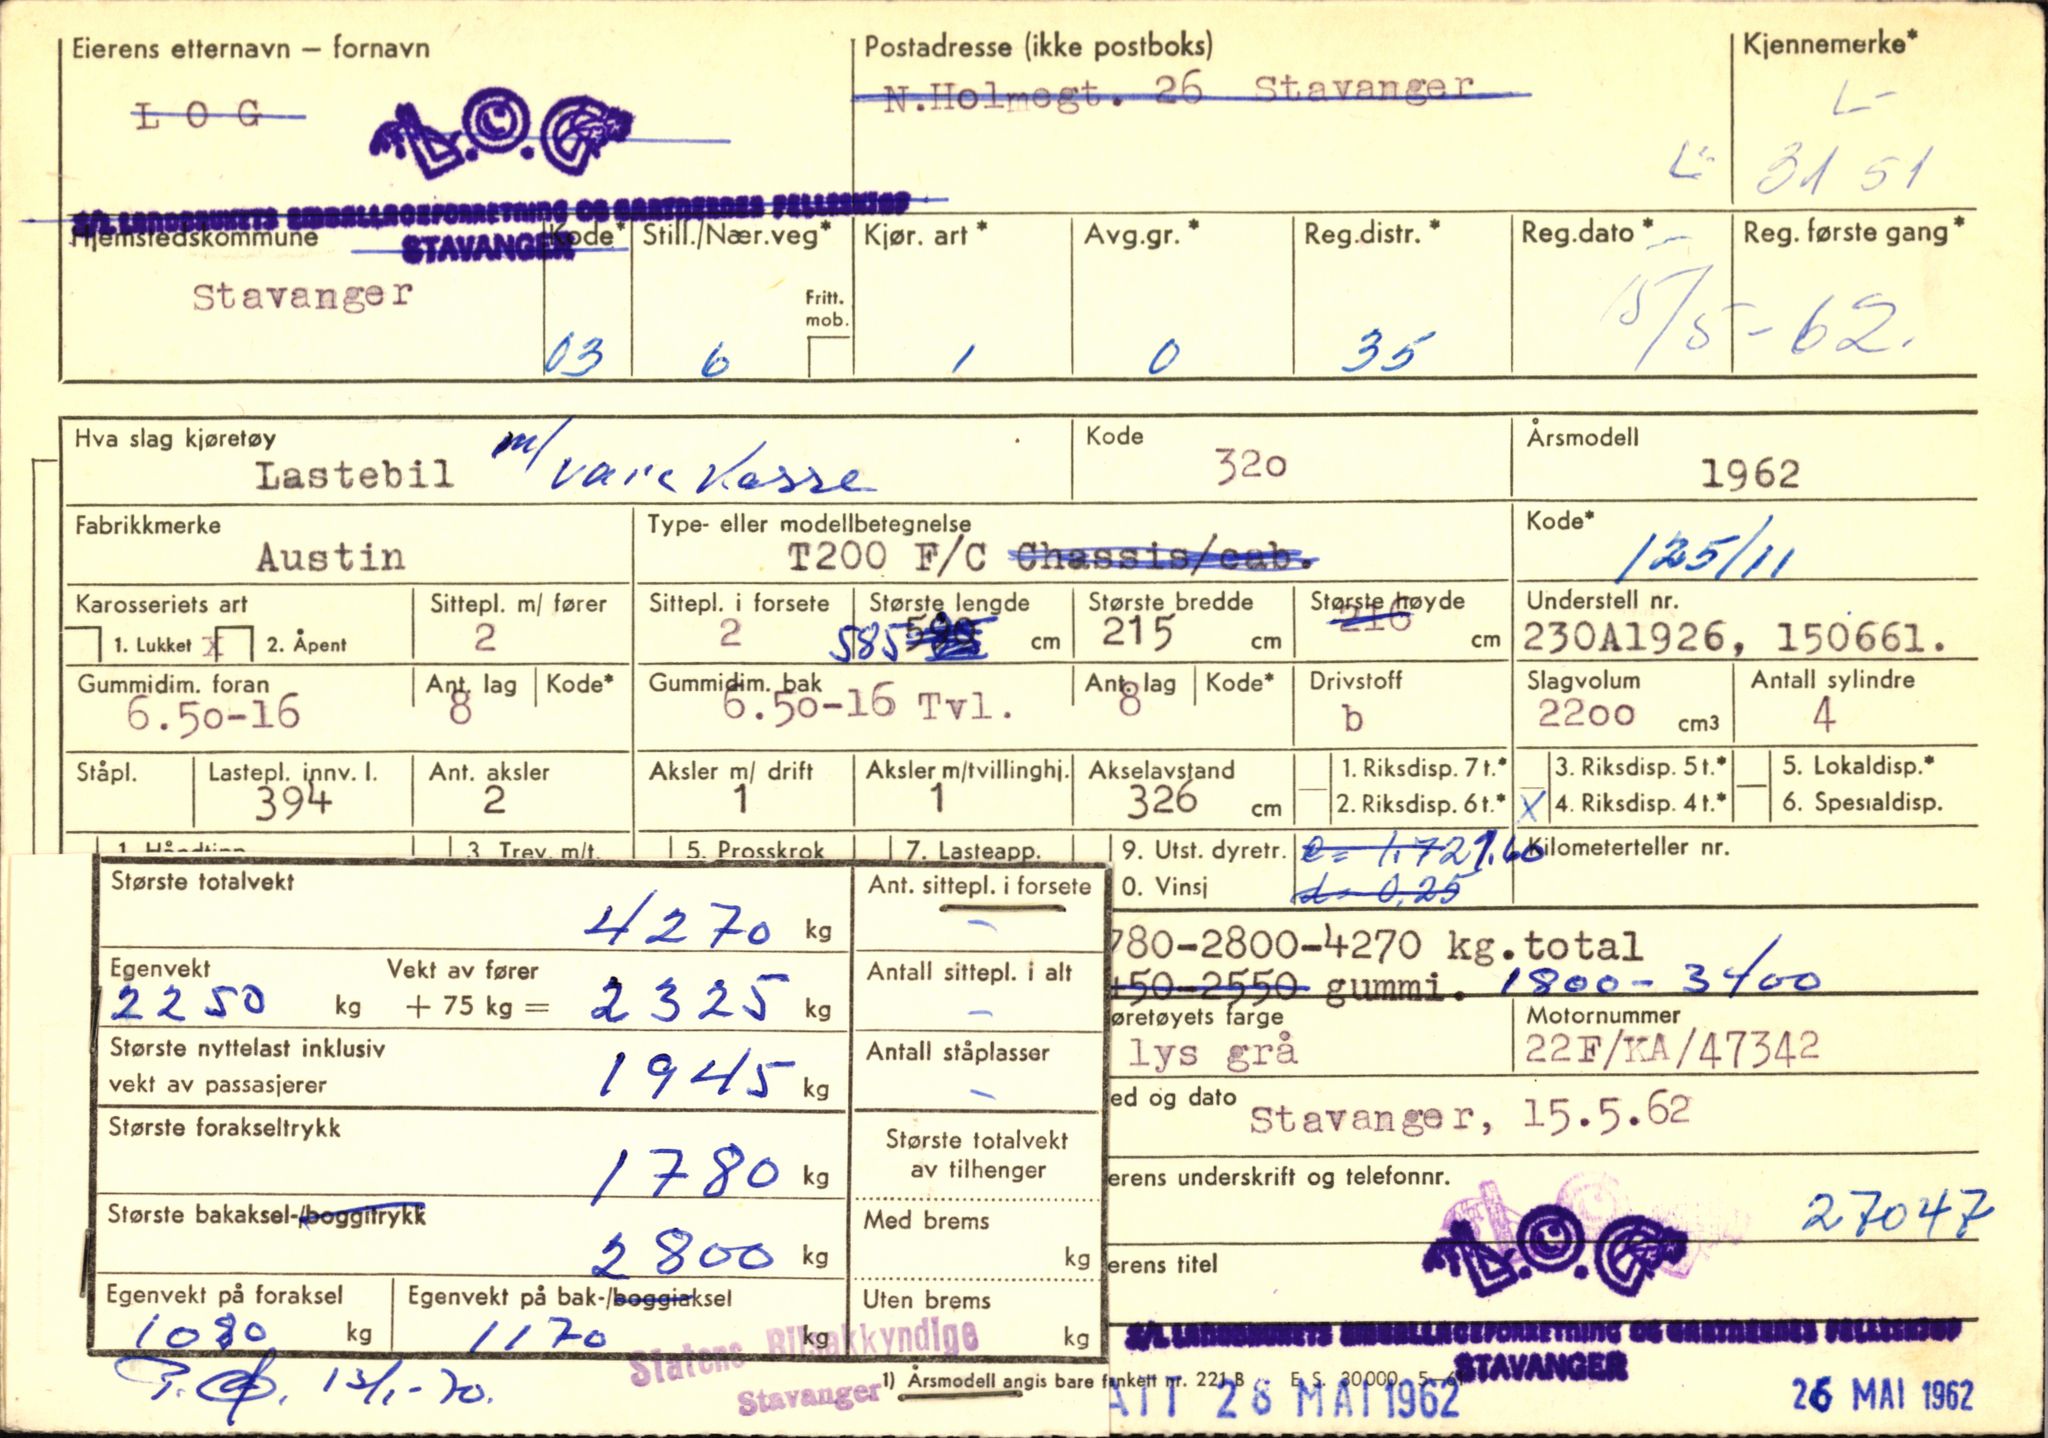 Eierens etternavn – fornavn Postadresse (ikke postboks) Kjennemerke*
L O G L.O.G N.Holmegt. 26 Stavanger L-
L- 31 51
S/L LANDBRUKETS EMBALLAGEFORRETNING OG GARTNERNES FELLESKJØP
STAVANGER
Hjemstedskommune Kode* Still./Nær.veg* Kjør. art* Avg.gr.* Reg.distr.* Reg.dato* Reg. første gang*
Stavanger Fritt. mob. 15/5-62.
03 6 1 0 35
Hva slag kjøretøy Kode Årsmodell
Lastebil m/ varekasse 320 1962
Fabrikkmerke Type- eller modellbetegnelse Kode*
Austin T200 F/C Chassis/cab. 125/11
Karosseriets art Sittepl. m/ fører Sittepl. i forsete Største lengde Største bredde Største høyde Understell nr.
1. Lukket x 2. Åpent 2 2 585 cm 215 cm 216 cm 230A1926, 150661.
Gummidim. foran Ant. lag Kode* Gummidim. bak Ant. lag Kode* Drivstoff Slagvolum Antall sylindre
6.50-16 8 6.50-16 Tvl. 8 b 2200 cm3 4
Ståpl. Lastepl. innv. l. Ant. aksler Aksler m/ drift Aksler m/tvillinghj. Akselavstand 1. Riksdisp. 7 t.* 3. Riksdisp. 5 t.* 5. Lokaldisp.*
394 2 1 1 326 cm 2. Riksdisp. 6 t.* X 4. Riksdisp. 4 t.* 6. Spesialdisp.
1. Håndtipp 3. Trev. m/t. 5. Prosskrok 7. Lasteapp. 9. Utst. dyretr. e= 1.72 1.60 Kilometerteller nr.
0. Vinsj d= 0,25
Største totalvekt Ant. sittepl. i forsete
4270 kg –
780-2800-4270 kg.total
Egenvekt Vekt av fører Antall sittepl. i alt
2250 kg + 75 kg = 2325 kg –
450-2550 gummi. 1800-3400
Største nyttelast inklusiv Antall ståplasser
vekt av passasjerer 1945 kg –
øretøyets farge Motornummer
lys grå 22F/KA/47342
ed og dato Stavanger, 15.5.62
Største forakseltrykk Største totalvekt
1780 kg av tilhenger
erens underskrift og telefonnr.
27047
Største bakaksel-/boggitrykk Med brems
2800 kg kg
L.O.G
erens titel
Egenvekt på foraksel Egenvekt på bak-/boggiaksel Uten brems
1080 kg 1170 kg kg
S/L LANDBRUKETS EMBALLAGEFORRETNING OG GARTNERNES FELLESKJØP
STAVANGER
Statens Bilsakkyndige
Stavanger
13/1-70.
1) Årsmodell angis bare f nr. 221 B E. S. 30000 5-61
ATT 26 MAI 1962 26 MAI 1962